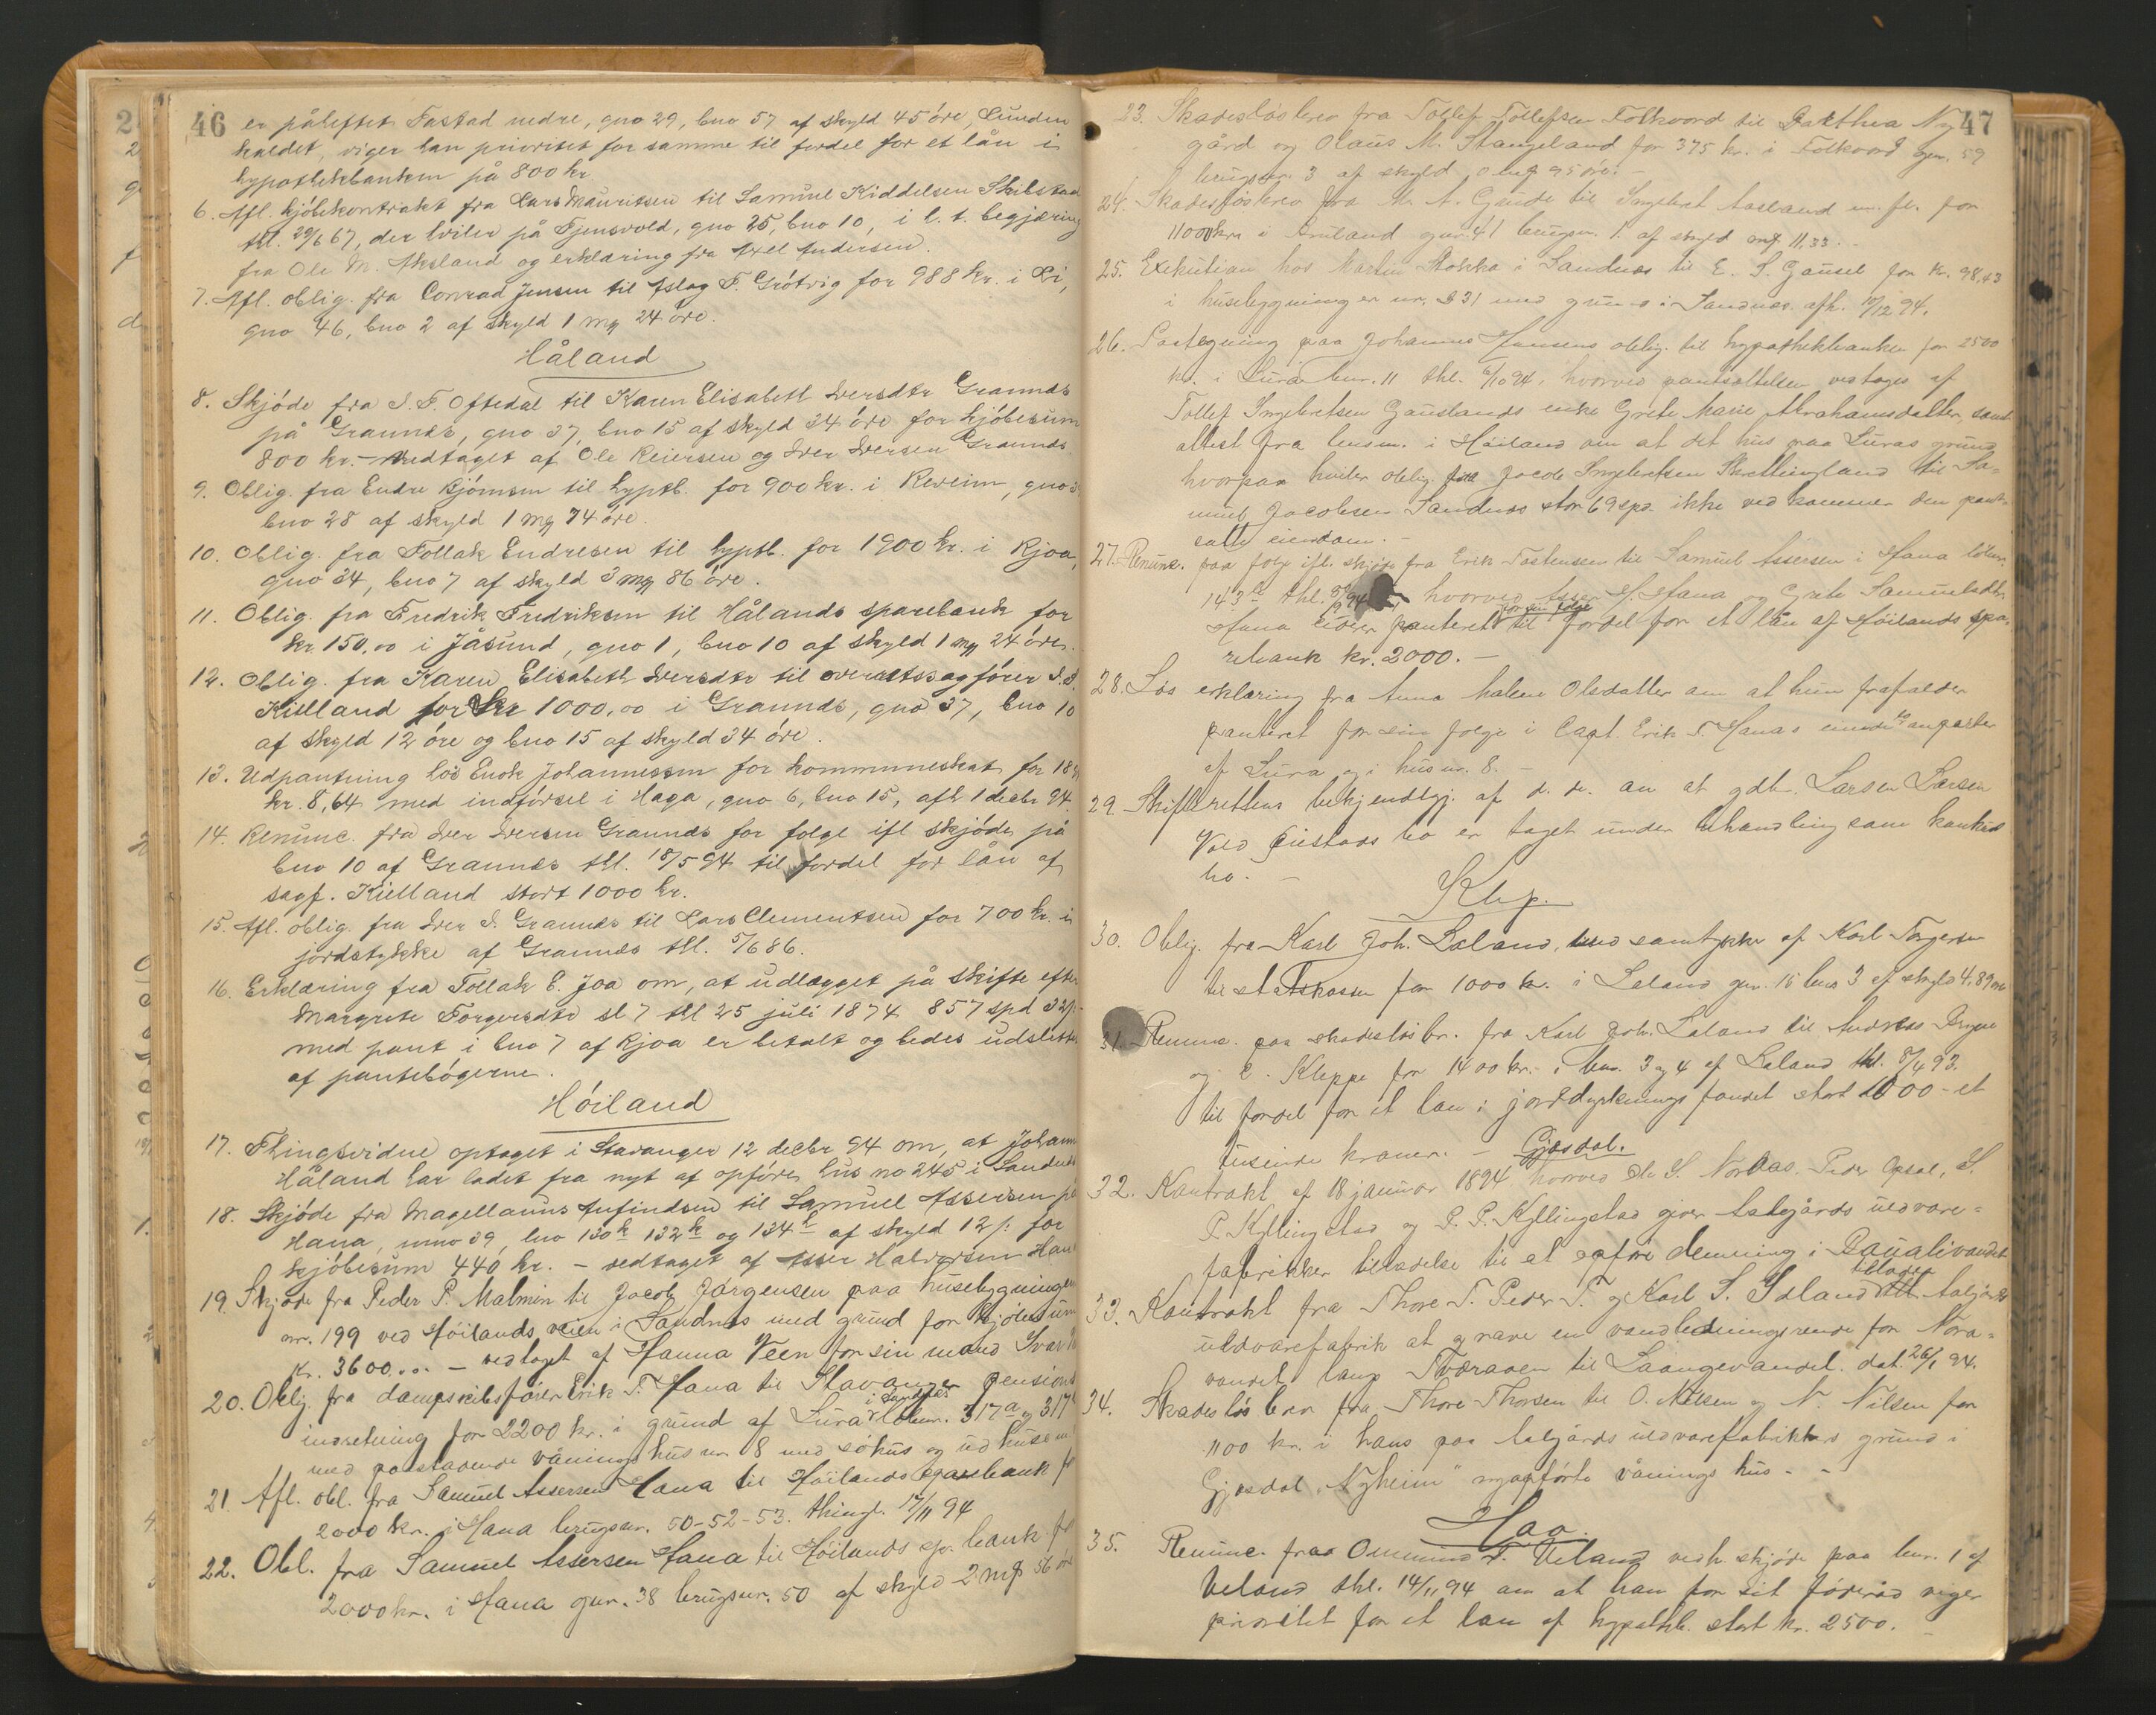 46
er påheftet Tastad nedre, gno 29, bno 57 af skyld 45 öre, Lunden
kaldet, viger han prioritet for samme til fordel for et lån i
hypothekbanken på 800 kr.
6. Afl. kjöbekontrakt fra Lars Mauritsen til Samuel Kiddelsen Skibstad
thl. 29/6 67, der hviler på Tjensvold, gno 25, bno 10, i h. t. begjæring
fra Ole M. Aksland og erklæring fra Axel Andersen.
7. Afl. oblig. fra Conrad Jensen til Aslag T. Grötvig for 988 kr. i Li,
gno 46, bno 2 af skyld 1 mg 24 öre.
Håland
8. Skjöde fra S. T. Oftedal til Karen Elisabeth Iversdtr Grannds
på Grannds, gno 37, bno 15 af skyld 34 öre for kjöbesum
800 kr. - vedtaget af Ole Reiersen og Iver Iversen Grannds.
9. Oblig. fra Endre Björnsen til hyptb. for 900 kr. i Reveim, gno
bno 28 af skyld 1 mg 74 öre.
10. Oblig. fra Tollak Endresen til hyptb. for 1900 kr. i Kjoa,
gno 34, bno 7 af skyld 3 mg 86 öre.
11. Oblig. fra Fredrik Fredriksen til Hålands sparebank for
kr 150,00 i Jåsund, gno 1, bno 10 af skyld 1 mg 24 öre.
12. Oblig. fra Karen Elisabeth Iversdtr til overretssagförer
Kielland for kr 1000,00 i Grannds, gno 37, bno 10
af skyld 12 öre og bno 15 af skyld 34 öre.
13. Udpantning hos Enok Johannessen for kommuneskat for
kr. 8,64 med indförsel i Haga, gno 6, bno 15, afh 1 decbr 94.
14. Renunc. fra Iver Iversen Grannds for folge ifl skjöde på
bno 10 af Grannds thl. 18/5 94 til fordel for lån af
sagf. Kielland stort 1000 kr.
15. Afl. oblig. fra Iver I. Grannds til Lars Clementsen for 700 kr. i
jordstykke af Grannds thl. 5/6 86.
16. Erklæring fra Tollak E. Joa om, at udlægget på skifte efter
Margrete Torgersdtr sl 7 thl 25 juli 1874 857 spd
med pant i bno 7 af Kjoa er betalt og bedes udslettet
af pantebögerne.
Höiland
17. Thingsvidne optaget i Stavanger 12 decbr 94 om, at Johann
Håland har ladet fra nyt af opföre hus no 245 i Sandnds
18. Skjöde fra Magellanus Aufindsen til Samuel Assersen på
Hana, mno 39, lno 130 132 og 134 af skyld 12 /: for
kjöbesum 440 kr. - vedtaget af Asser Halvorsen Hana
19 Skjöde fra Peder P. Malmin til Jacob Jörgensen paa husebygningen
nr. 199 ved Höilands veien i Sandnes med grund for kjöbesum
kr. 3600.00 - vedtaget af Hanna Veen for sin mand
20. Oblig. fra dampskibsförer Erik T. Hana til Stavanger pensions
i Sandnes
indretning for 2200 kr. i grund af Lura löbenr. 317 a og 317
med paastaaende våningshus nr 8 med söhus og udhuse
21 Afl. obl. fra Samuel Assersen Hana til Höilands sparebank
2000 kr. i Hana brugsnr. 50-52-53. thingl. 17/11 94
22. Obl. fra Samuel Assersen Hana til Höilands sp. bank for
2000 kr. i Hana gnr. 38 brugsnr. 50 af skyld 2 mg 56 öre
47
23. Skadeslösbrev fra Tollef Tollefsen Folkvord til Dorthea Ny
gård og Olaus M. Stangeland for 375 kr. i Folkvord gnr. 59
brugsnr. 3 af skyld 95 öre. -
24. Skadeslösbrev fra M. A. Gande til Ingebret Aasland m. fl. for
1100 kr i gnr. 41 brugsnr. 1. af skyld mg 11,33.
25. Exekution hos Martin Stokka i Sandnes til E. S. Gausel for kr. 98,43
i husebygningen nr. 231 med grund i Sandnes. afh. 11/12 94.
26. Paategning paa Johannes Hansens oblig. til hypothekbanken for 2500
kr. i Lura bnr. 11 thl. 6/10 94, hvorved pantsættelsen vedtages af
Tollef Ingebretsen Gauslands enke Grete Marie Abrahamsdatter, samt
attest fra lensm. i Höiland om at det hus paa Luras grund
hvorpaa hviler oblig. fra Jacob Ingebretsen Skrettingland til Sa-
muel Jacobsen Sandnes stor 69 spd. ikke ved kommer den pant-
satte eiendom. -
27. Renunc. paa folge ifl. skjöde fra Erik Tostensen til Samuel Assersen i Hana löbenr.
143 thl. hvorved Asser H. Hana og Grete Samuelsdtr
for sin folge
Hana viger panteret til fordel for et lån af Höilands spa-
rebank kr. 2000. -
28. Lös erklæring fra Anna Malene Olsdatter om at hun frafalder
panteret for sin folge i Capt. Erik T. Hanas eiende anparter
af Lura og i hus nr. 8. -
29. Skifterettens bekjendtgj. af d. d. om at gdbr. Larsen Larsen
Vold bo er taget under behandling som konkurs
bo. -
Klep.
30. Oblig. fra Karl Joh. Laland, med samtykke af Karl Torgersen
til statskassen for 1000 kr. i Laland gnr. 15 bnr 3 af skyld 4.89
31. Renunc. paa skadeslösbr. fra Karl Joh. Laland til Andreas Bryne
og E. Kleppe for 1400 kr. i bnr. 3 og 4 af Laland thl. 8/4 93.
til fordel for et lån i jorddyrkningsfondet stort 1000 - et
tusinde kroner. - Gjesdal.
32. Kontrakt af 18 januar 1894 hvorved Ole S. Nordaas. Peder Opsal, S.
P. Kyllingstad og P. P. Kyllingstad giver Aalgårds uldvare-
fabrikker tilladelse til at opföre demning i
tillader
33. Kontrakt fra Thore T. Peder T. og Karl S. Ydland Aalgårds
uldvarefabrik at grave en vandledningsrende for Nora-
vandet langs Tværaaen til Laangevandet. dat. 26/1 94.
34. Skadeslösbrev fra Thore Thorsen til O. Nilsen og N. Nilsen for
1100 kr. i hans paa Aalgårds uldvarefabrikkes grund i
Gjesdal „Nyheim" nyopförte våningshus. -
Haa.
35. Renunc. fra Ommund T. Ueland vedk. skjöde paa bnr. 1 af
Ueland thl. 14/11 94 om at han for sit föderåd viger
prioritet for et lån af hypothb. stort kr. 2500. -